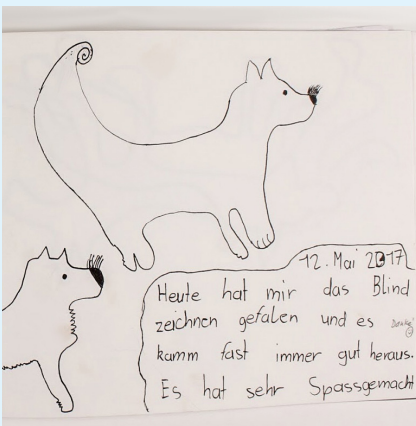 12. Mai 2017
Heute hat mir das Blind
zeichnen gefalen und es
kamm fast immer gut heraus.
Es hat sehr Spassgemacht